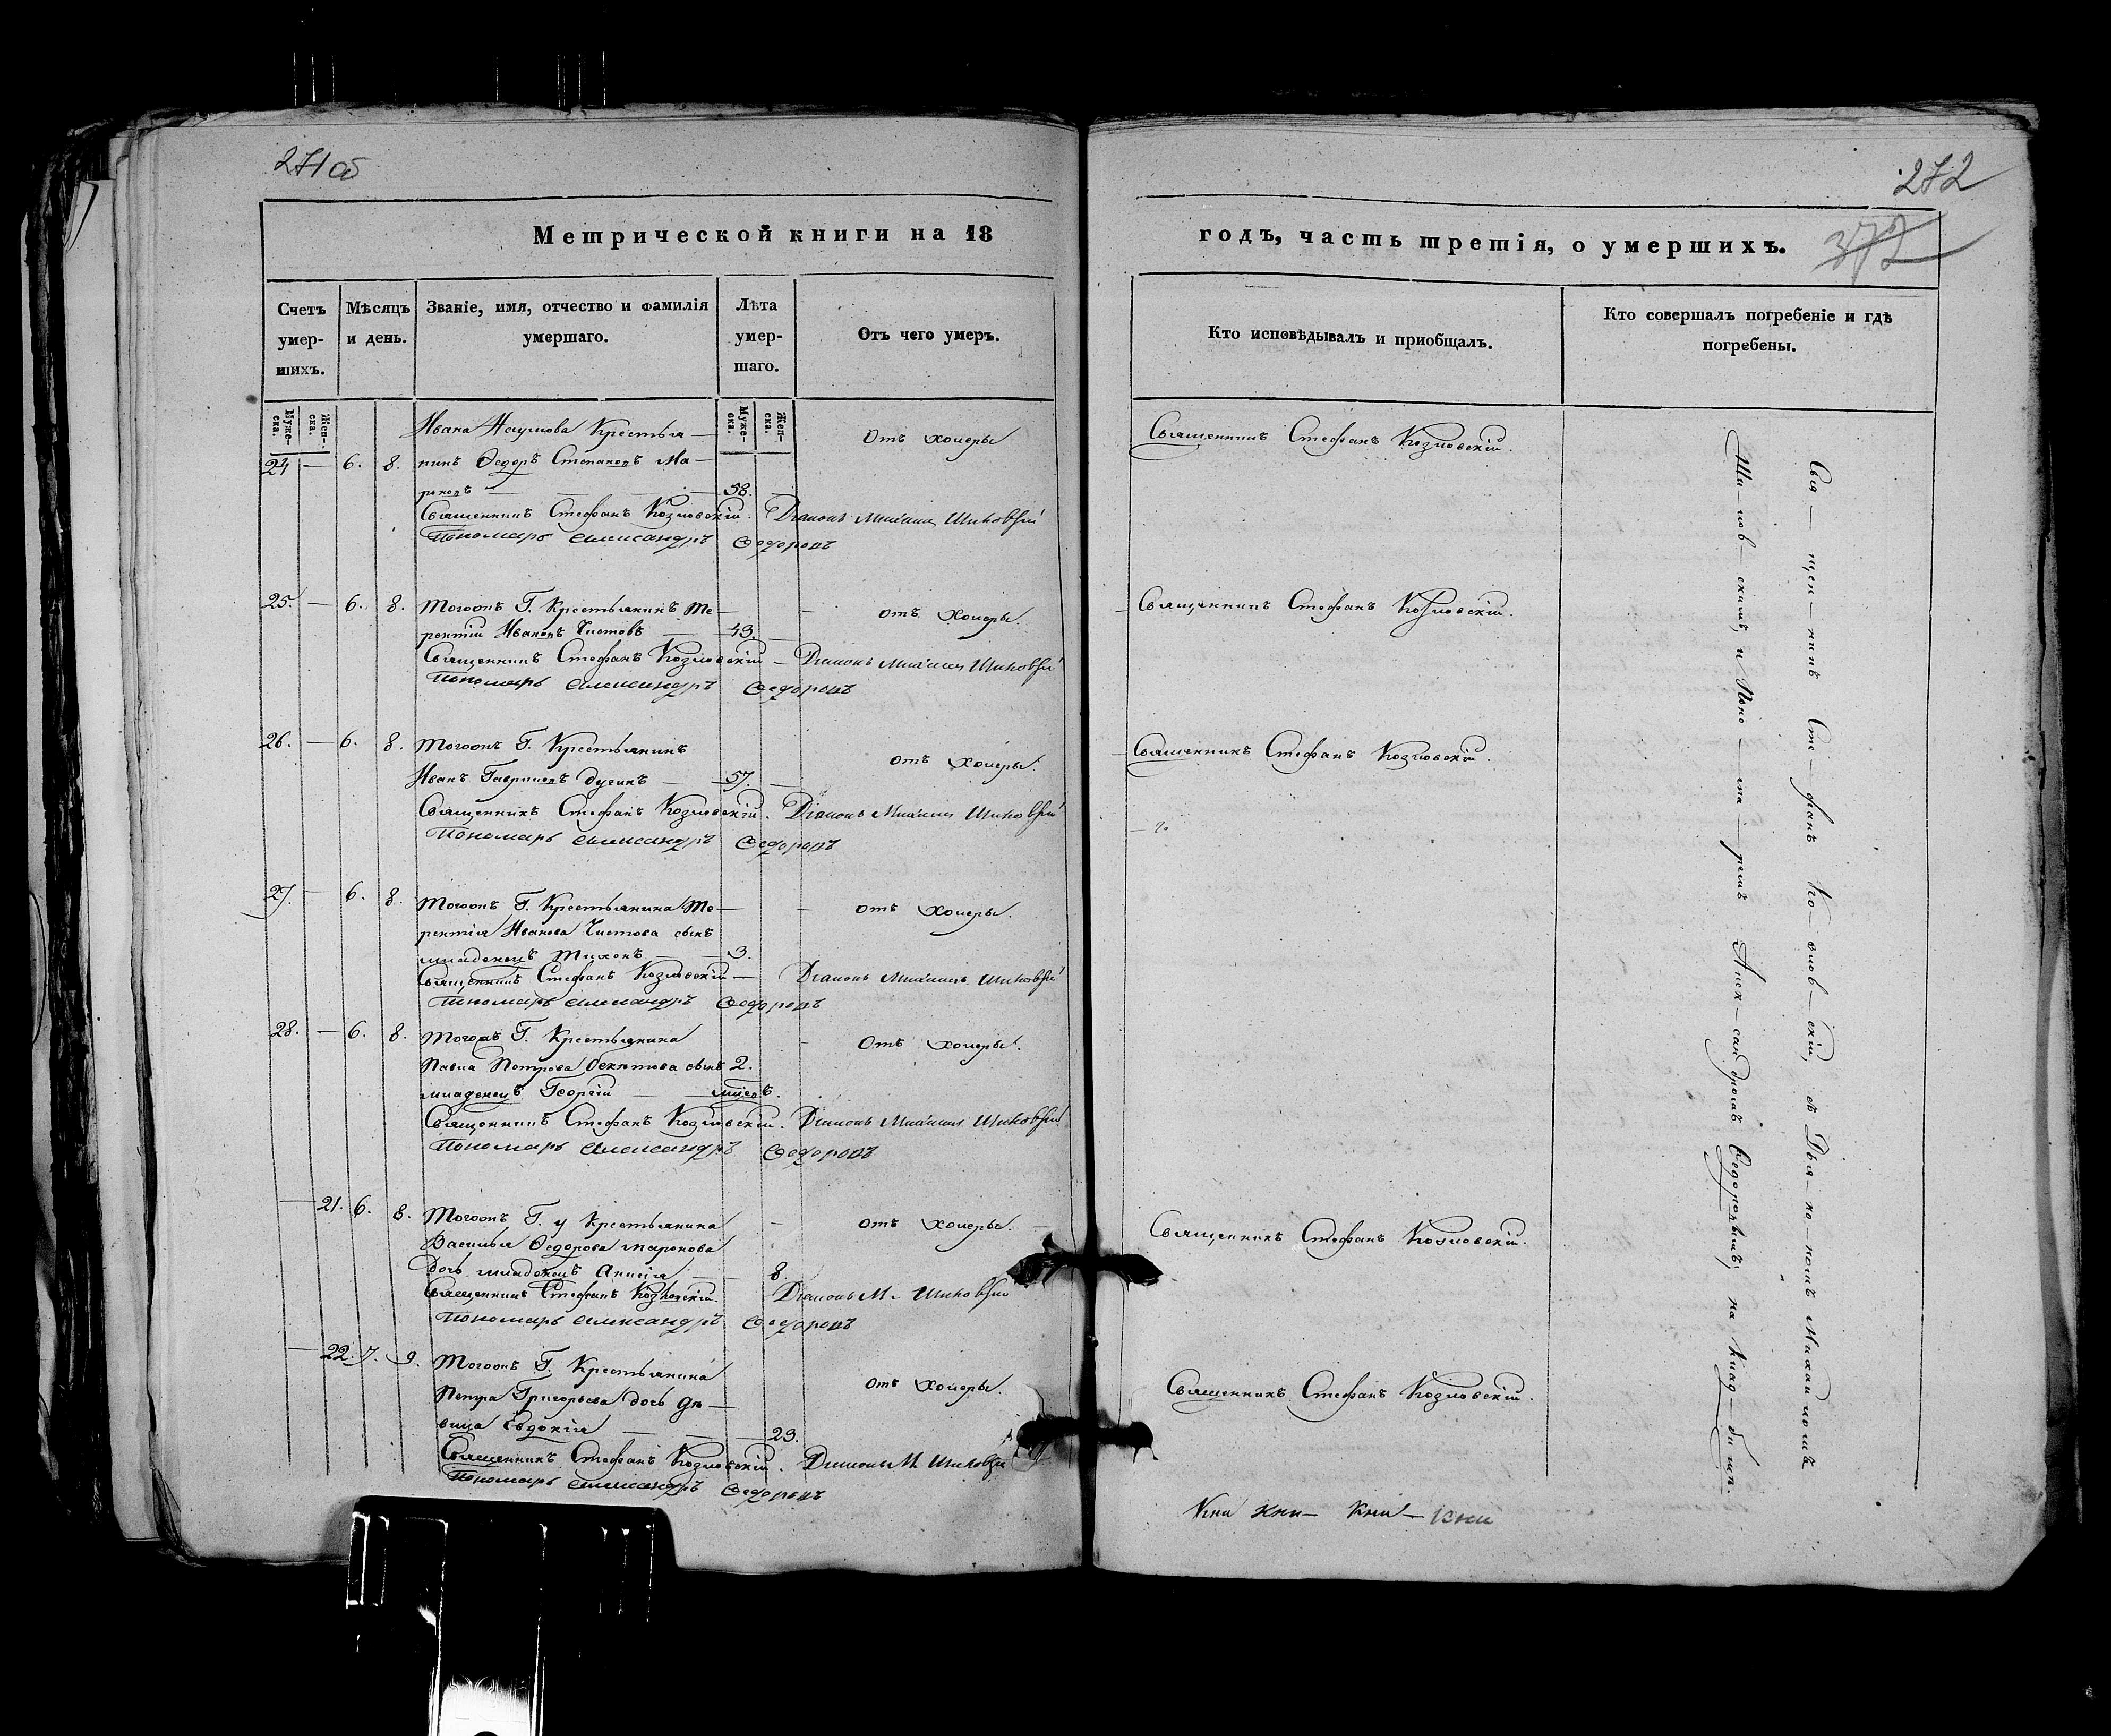 271 об
272
372
Метрической книги на 18
годъ, часть третія, о умершихъ.
Счетъ умер-
шихъ.
Мѣсяцъ
и день.
Званіе, имя, отчество и фамилія
умершаго.
Лѣта
умер-
шаго.
Отъ чего умеръ.
Кто исповѣдывалъ и приобщалъ.
Кто совершалъ погребеніе и гдѣ
погребены.
Муже-
ска.
Жен-
ска.
Муже-
ска.
Жен-
ска.
Ивана Наумова Крестья-
24 — 6. 8. нинъ Ѳедоръ Степановъ Ма-
роновъ — 58.
Отъ холеры
Священникъ Стефанъ Козловскій.
Священникъ Стефанъ Козловскій. Діаконъ Михаилъ Шиловскій
Пономарь Александръ Ѳедоровъ
25. — 6. 8. Тогожъ Г. Крестьянинъ Те-
рентій Ивановъ Чистовъ — 43.
отъ холеры.
Священникъ Стефанъ Козловскій.
Священникъ Стефанъ Козловскій — Діаконъ Михаилъ Шиловскій
Пономарь Александръ Ѳедоровъ
26. — 6. 8. Тогожъ Г. Крестьянинъ
Иванъ Гавриловъ — 57.
отъ холеры.
Священникъ Стефанъ Козловскій.
Священникъ Стефанъ Козловскій. Діаконъ Михаилъ Шиловскій
Пономарь Александръ Ѳедоровъ
27. — 6. 8. Тогожъ Г. Крестьянина Те-
рентія Иванова Чистова сынъ
младенецъ Тихонъ — 3.
отъ холеры.
Священникъ Стефанъ Козловскій — Діаконъ Михаилъ Шиловскій
Пономарь Александръ Ѳедоровъ
28. — 6. 8. Тогожъ Г. Крестьянина
Павла Петрова Бекетова сынъ 2.
младенецъ Георгій — мѣсяц.
Отъ холеры.
Священникъ Стефанъ Козловскій. Діаконъ Михаилъ Шиловскій
Пономарь Александръ Ѳедоровъ
— 21. 6. 8. Тогожъ Г. у Крестьянина
Василья Ѳедорова Маронова
дочь младенецъ Анисія — 8.
отъ холеры. —
Священникъ Стефанъ Козловскій.
Священникъ Стефанъ Козловскій. Діаконъ М. Шиловскій
Пономарь Александръ Ѳедоровъ
— 22. 7. 9. Тогожъ Г. Крестьянина
Петра Григорьева дочь дѣ-
вица Евдокія — 23.
отъ холеры.
Священникъ Стефанъ Козловскій.
Священникъ Стефанъ Козловскій. Діаконъ М. Шиловскій
Пономарь Александръ Ѳедоровъ
Свя — щен — никъ Сте — фанъ Ко — злов — скій, съ Дья — ко — номъ Михаиломъ
Ши — лов — скимъ, и Поно — ма — ремъ Алек — сандромъ Ѳедоровымъ, на Клад — бищѣ.
Кни кни — кни — кни